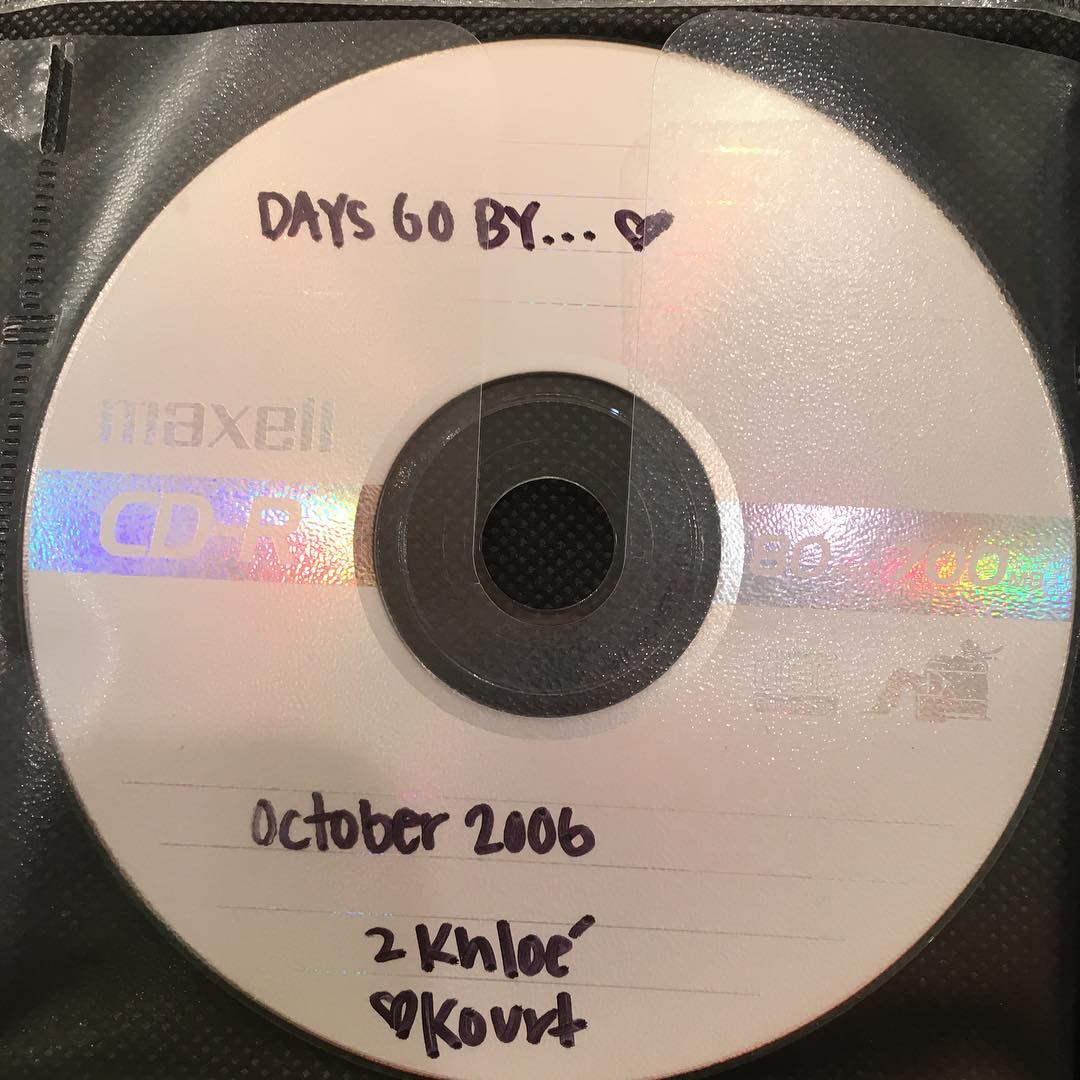 DAYS GO BY... ♥
maxell
CD-R
80 700MB
October 2006
2 Khloé
♡ Kourt